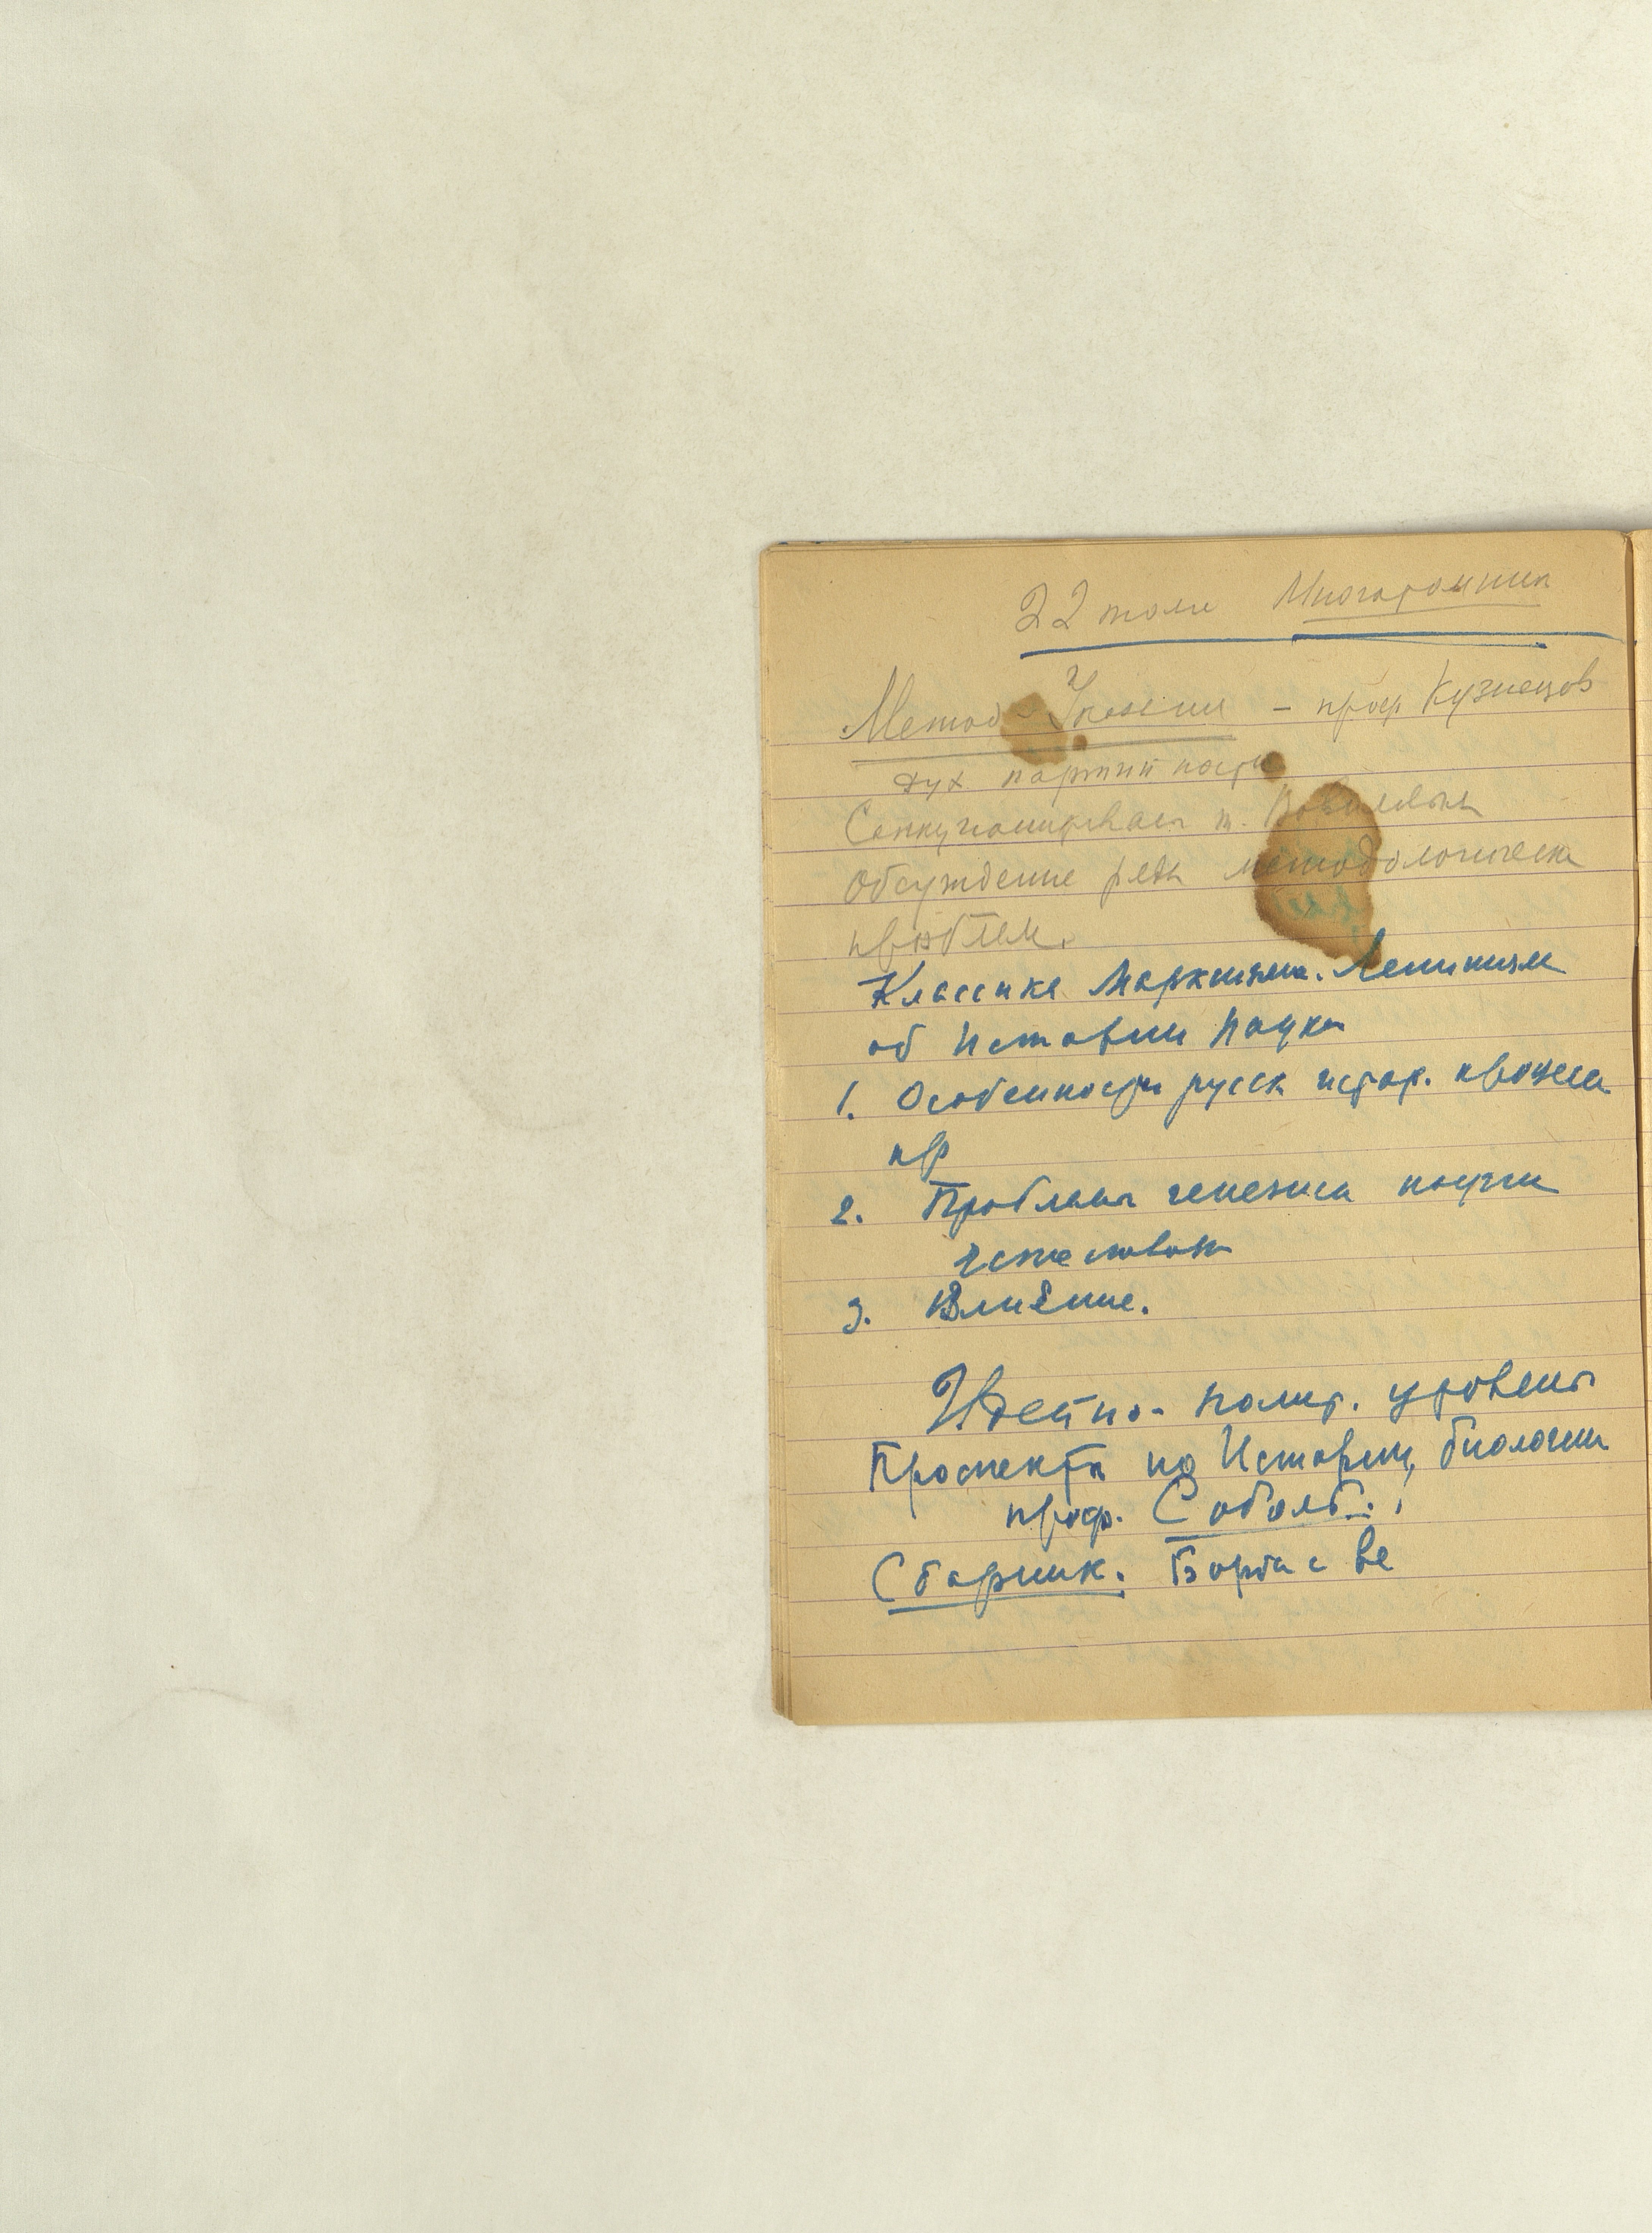 22 тома Многотомник
Метод Указани – проф Кузнецов
дух партийности
т. Вавиловым
Обсуждение ряда методологическ
проблем.
Классики Марксизма. Ленинизм
об Истории Науки
1. Особенности русск истор. процесса
пр
2. Проблема генезиса научн
естествозн
3. Влияние.
Идейно-полит. уровень
Проспекта по Истории биологии
проф. Соболь.
Сборник. Борьба с ве